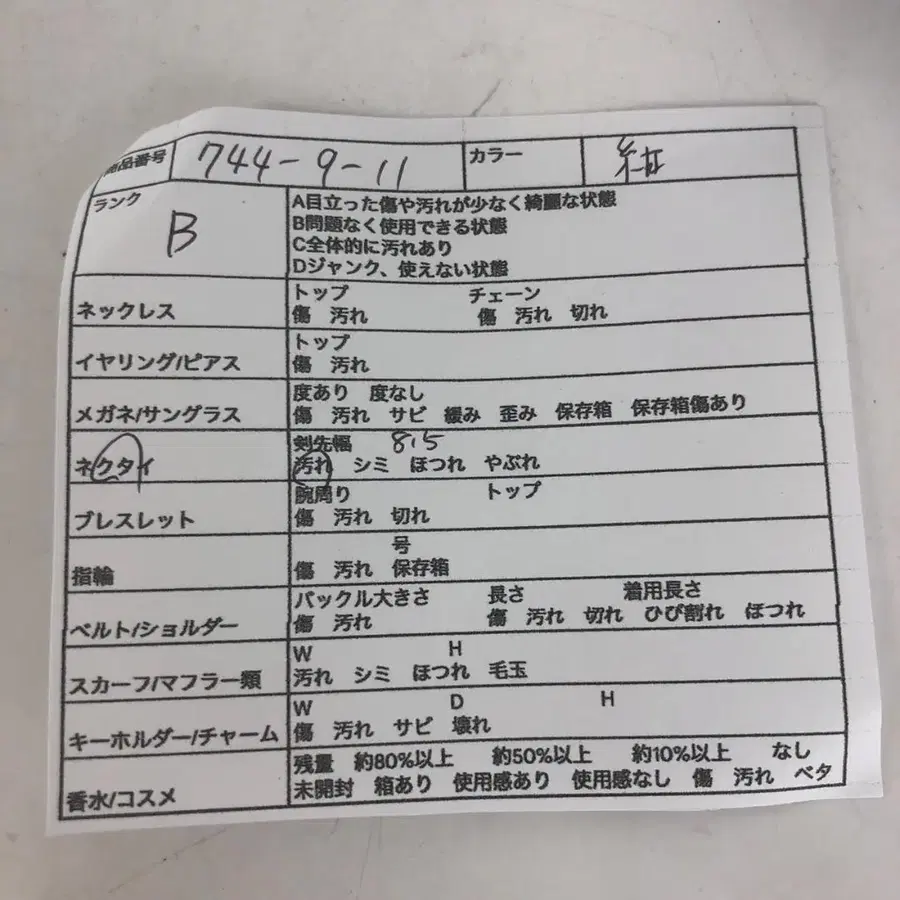 商品番号 744-9-11 カラー 紺
ランク B
A目立った傷や汚れが少なく綺麗な状態
B問題なく使用できる状態
C全体的に汚れあり
Dジャンク、使えない状態
ネックレス
トップ チェーン
傷 汚れ 傷 汚れ 切れ
イヤリング/ピアス
トップ
傷 汚れ
メガネ/サングラス
度あり 度なし
傷 汚れ サビ 緩み 歪み 保存箱 保存箱傷あり
ネクタイ
剣先幅 8.5
汚れ シミ ほつれ やぶれ
ブレスレット
腕周り トップ
傷 汚れ 切れ
指輪
号
傷 汚れ 保存箱
ベルト/ショルダー
バックル大きさ 長さ 着用長さ
傷 汚れ 傷 汚れ 切れ ひび割れ ほつれ
スカーフ/マフラー類
W H
汚れ シミ ほつれ 毛玉
キーホルダー/チャーム
W D H
傷 汚れ サビ 壊れ
香水/コスメ
残量 約80%以上 約50%以上 約10%以上 なし
未開封 箱あり 使用感あり 使用感なし 傷 汚れ ベタ